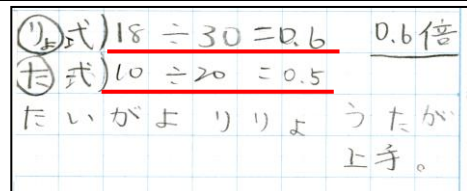 りょ 式) 18 ÷ 30 = 0.6 0.6倍
た 式) 10 ÷ 20 = 0.5
たいがよりりょうたが
上手。